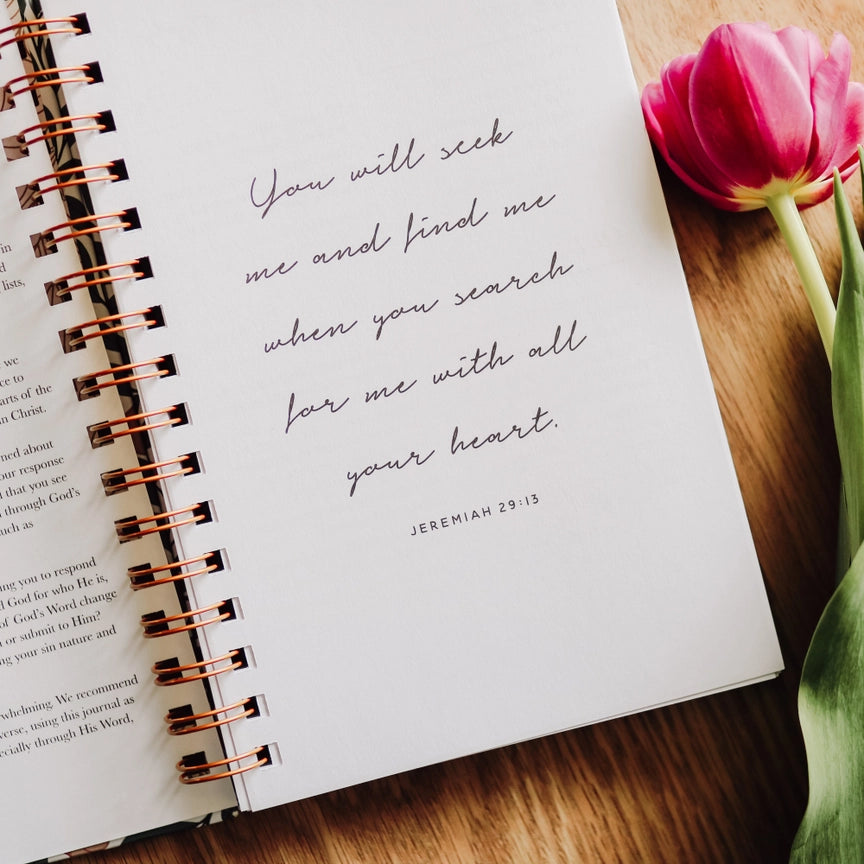 in
d
lists,
we
ce to
arts of the
n Christ.
ned about
our response
d that you see
through God's
uch as
ng you to respond
d God for who He is,
of God's Word change
or submit to Him?
ng your sin nature and
rwhelming. We recommend
verse, using this journal as
ecially through His Word,
You will seek
me and find me
when you search
for me with all
your heart.
JEREMIAH 29:13